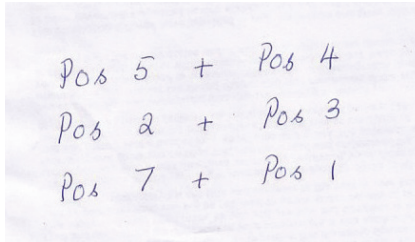 Pos 5 + Pos 4
Pos 2 + Pos 3
Pos 7 + Pos 1